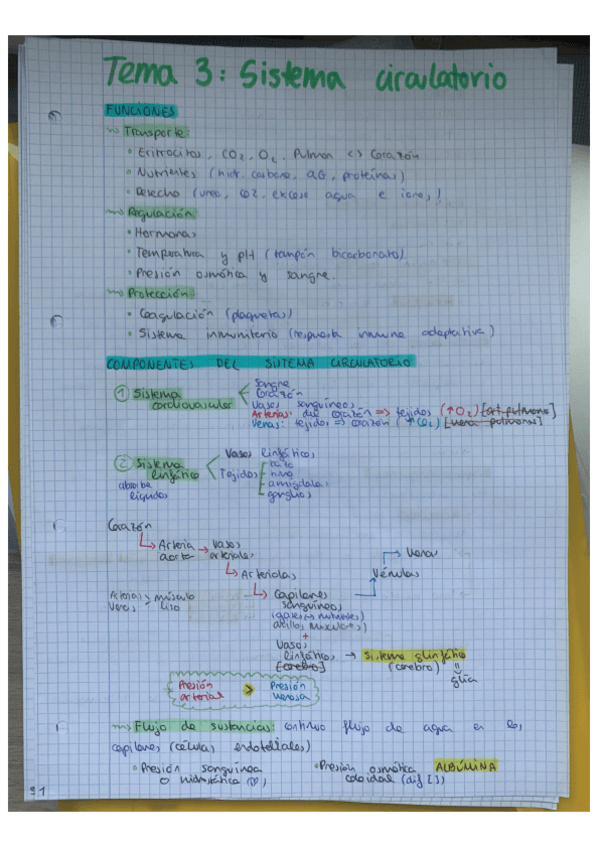 Tema 3: Sistema circulatorio
FUNCIONES
Transporte:
• Eritrocitos, CO2, O2. Pulmón <> Corazón
• Nutrientes (hidr. carbono, aG, proteínas)
• Desecho (urea, CO2, exceso agua e iones)
Regulación:
• Hormonas
• Temperatura y pH (tampón bicarbonato)
• Presión osmótica y sangre.
Protección:
• Coagulación (plaquetas)
• Sistema inmunitario (respuesta inmune adaptativa)
COMPONENTES DEL SISTEMA CIRCULATORIO
① Sistema cardiovascular
Sangre
Corazón
Vasos sanguíneos
Arterias: del corazón => tejidos (↑O2) [art. pulmonar]
Venas: tejidos => corazón (↑CO2) [vena pulmonar]
② Sistema linfático
absorbe líquidos
Vasos linfáticos
Tejidos
timo
amígdalas
ganglios
Corazón
Arteria aorta → Vasos arteriales
Arteriolas
Vénulas
Venas
Arterias Venas > músculo liso
Capilares sanguíneos
(gases y nutrientes)
+
Vasos linfáticos
[cerebro]
→ Sistema glinfático (cerebro)
glía
Presión arterial > Presión venosa
Flujo de sustancias: continuo flujo de agua en los
capilares (células endoteliales)
• Presión sanguínea o hidrostática (P)
• Presión osmótica coloidal (dif [ ]) ALBÚMINA